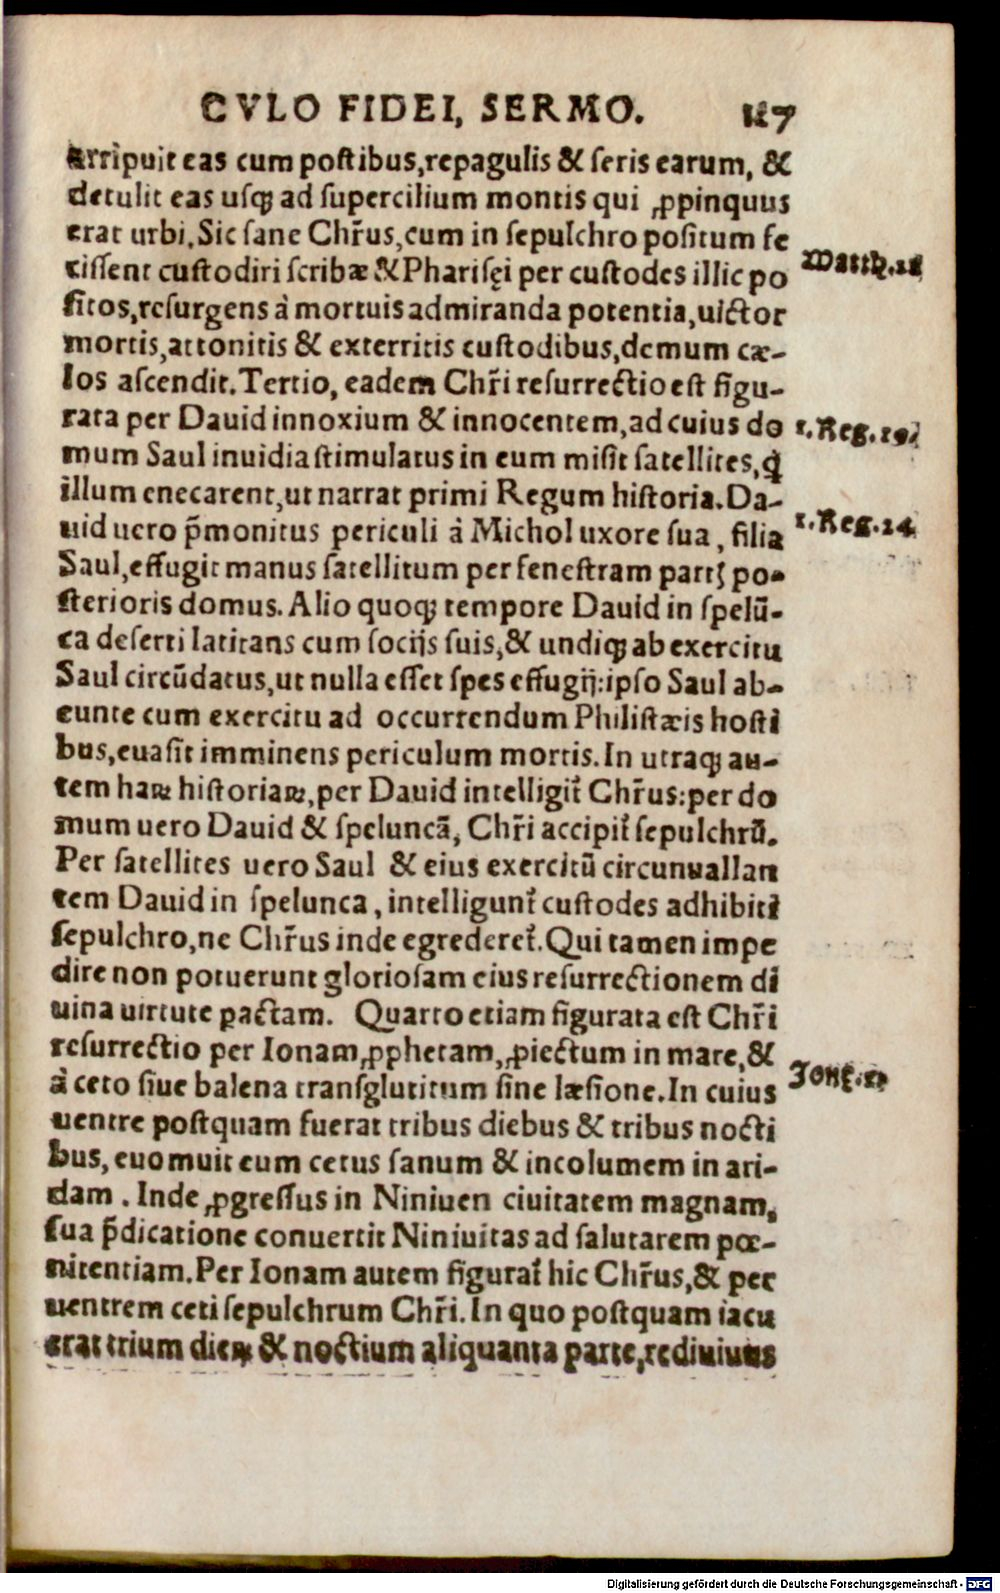 CVLO FIDEI, SERMO. 117
arripuit eas cum poſtibus,repagulis & ſeris earum, &
detulit eas uſqꝫ ad ſupercilium montis qui ꝓpinquus
erat urbi. Sic ſane Chr̃us,cum in ſepulchro poſitum fe
ciſſent cuſtodiri ſcribæ & Phariſęi per cuſtodes illic po
Matth.28
ſitos,reſurgens à mortuis admiranda potentia,uictor
mortis,attonitis & exterritis cuſtodibus,demum cæ-
los aſcendit. Tertio, eadem Chr̃i reſurrectio eſt figu-
rata per Dauid innoxium & innocentem,ad cuius do
1.Reg.19.
mum Saul inuidia ſtimulatus in eum miſit ſatellites,q̃
illum enecarent,ut narrat primi Regum hiſtoria. Da-
uid uero p̃monitus periculi à Michol uxore ſua, filia
1.Reg.24
Saul,effugit manus ſatellitum per feneſtram partꝭ po-
ſterioris domus. Alio quoqꝫ tempore Dauid in ſpelũ-
ca deſerti latitans cum ſocijs ſuis,& undiqꝫ ab exercitu
Saul circũdatus,ut nulla eſſet ſpes effugij:ipſo Saul ab-
eunte cum exercitu ad occurrendum Philiſtæis hoſti
bus,euaſit imminens periculum mortis. In utraqꝫ au-
tem haꝝ hiſtoriaꝝ,per Dauid intelligit̃ Chr̃us:per do
mum uero Dauid & ſpeluncã, Chr̃i accipit̃ ſepulchrũ.
Per ſatellites uero Saul & eius exercitũ circunuallan
tem Dauid in ſpelunca, intelligunt̃ cuſtodes adhibiti
ſepulchro,ne Chr̃us inde egrederet̃. Qui tamen impe
dire non potuerunt glorioſam eius reſurrectionem di
uina uirtute ꝑactam. Quarto etiam figurata eſt Chr̃i
reſurrectio per Ionam,ꝓphetam,ꝓiectum in mare,&
à ceto ſiue balena tranſglutitum ſine læſione. In cuius
Jonę.2
uentre poſtquam fuerat tribus diebus & tribus nocti
bus, euomuit eum cetus ſanum & incolumem in ari-
dam. Inde ꝓgreſſus in Niniuen ciuitatem magnam,
ſua p̃dicatione conuertit Niniuitas ad ſalutarem pœ-
nitentiam. Per Ionam autem figurat̃ hic Chr̃us,& per
uentrem ceti ſepulchrum Chr̃i. In quo poſtquam iacu
erat trium dieꝝ & noctium aliquanta parte,rediuiuus
Digitalisierung gefördert durch die Deutsche Forschungsgemeinschaft - DFG